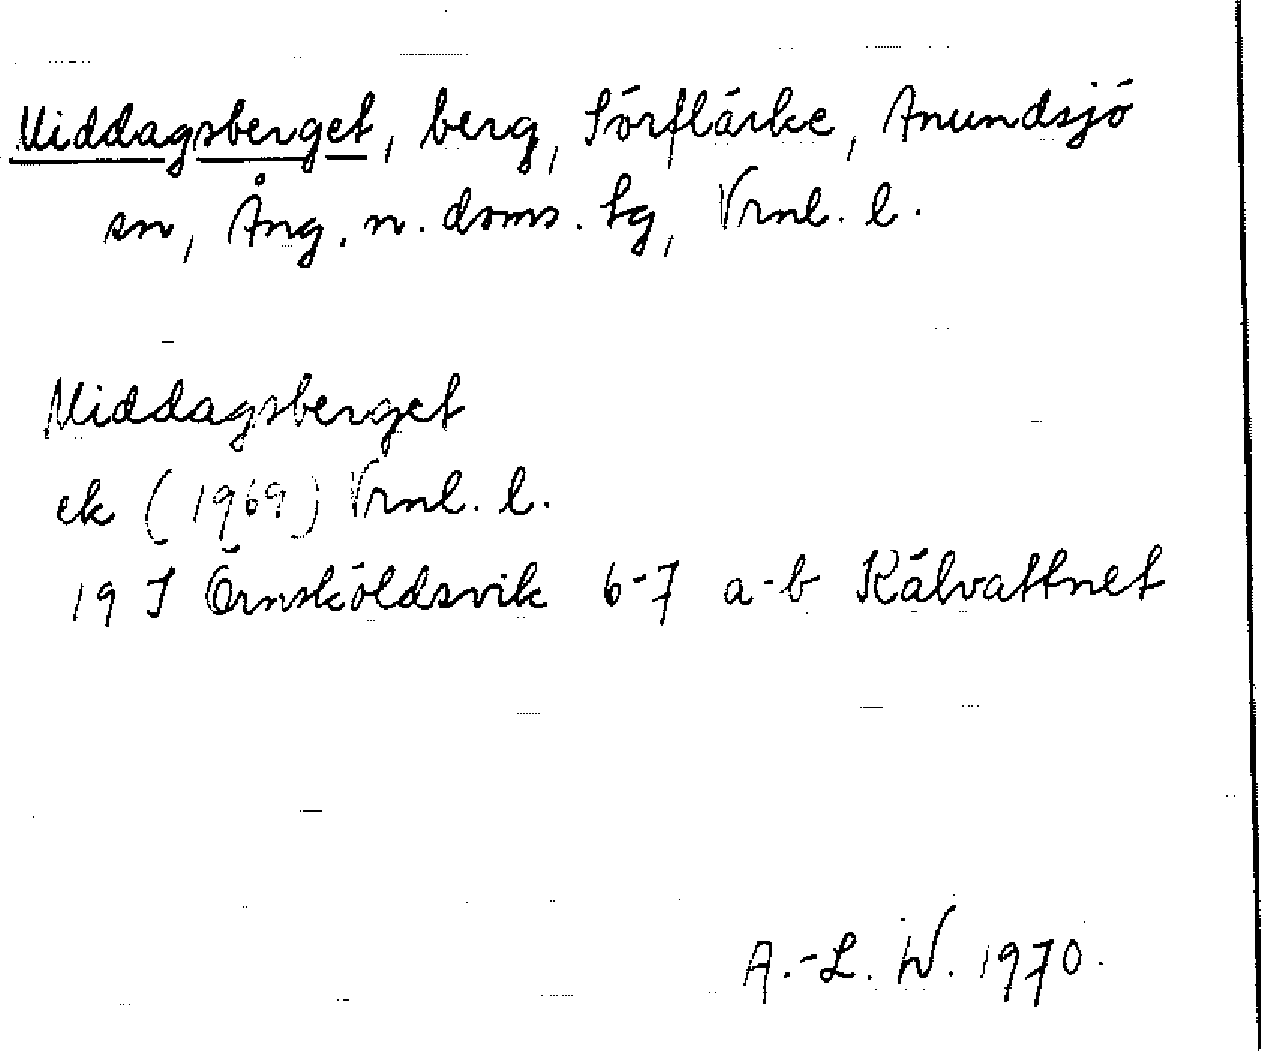 Middagsberget, berg, Sörflärke, Anundsjö
sn, Ång. n. doms. tg, Vrnl. l.
Middagsberget
ek (1969) Vrnl. l.
19 J Örnsköldsvik 6-7 a-b Kälvattnet
A.-L. W. 1970.